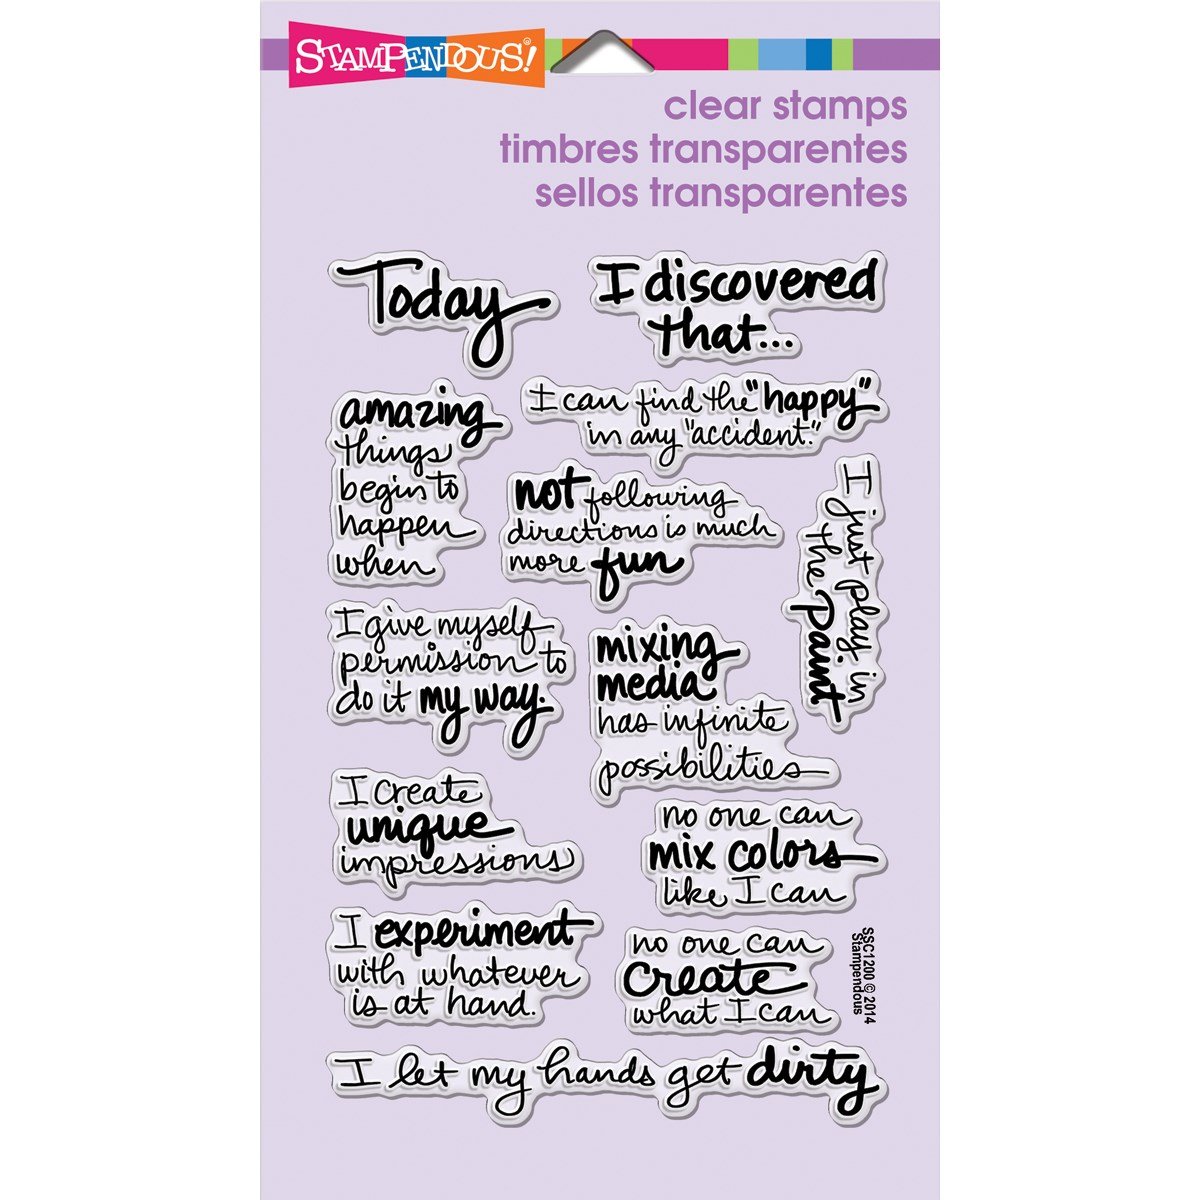 STAMPENDOUS!®
clear stamps
timbres transparentes
sellos transparentes
Today
I discovered
that...
amazing
things
begin to
happen
when
I can find the "happy"
in any "accident."
not following
directions is much
more fun
I just play in
the paint
I give myself
permission to
do it my way.
mixing
media
has infinite
possibilities
I create
unique
impressions
no one can
mix colors
like I can
I experiment
with whatever
is at hand.
no one can
create
what I can
SSC1200 © 2014
Stampendous
I let my hands get dirty